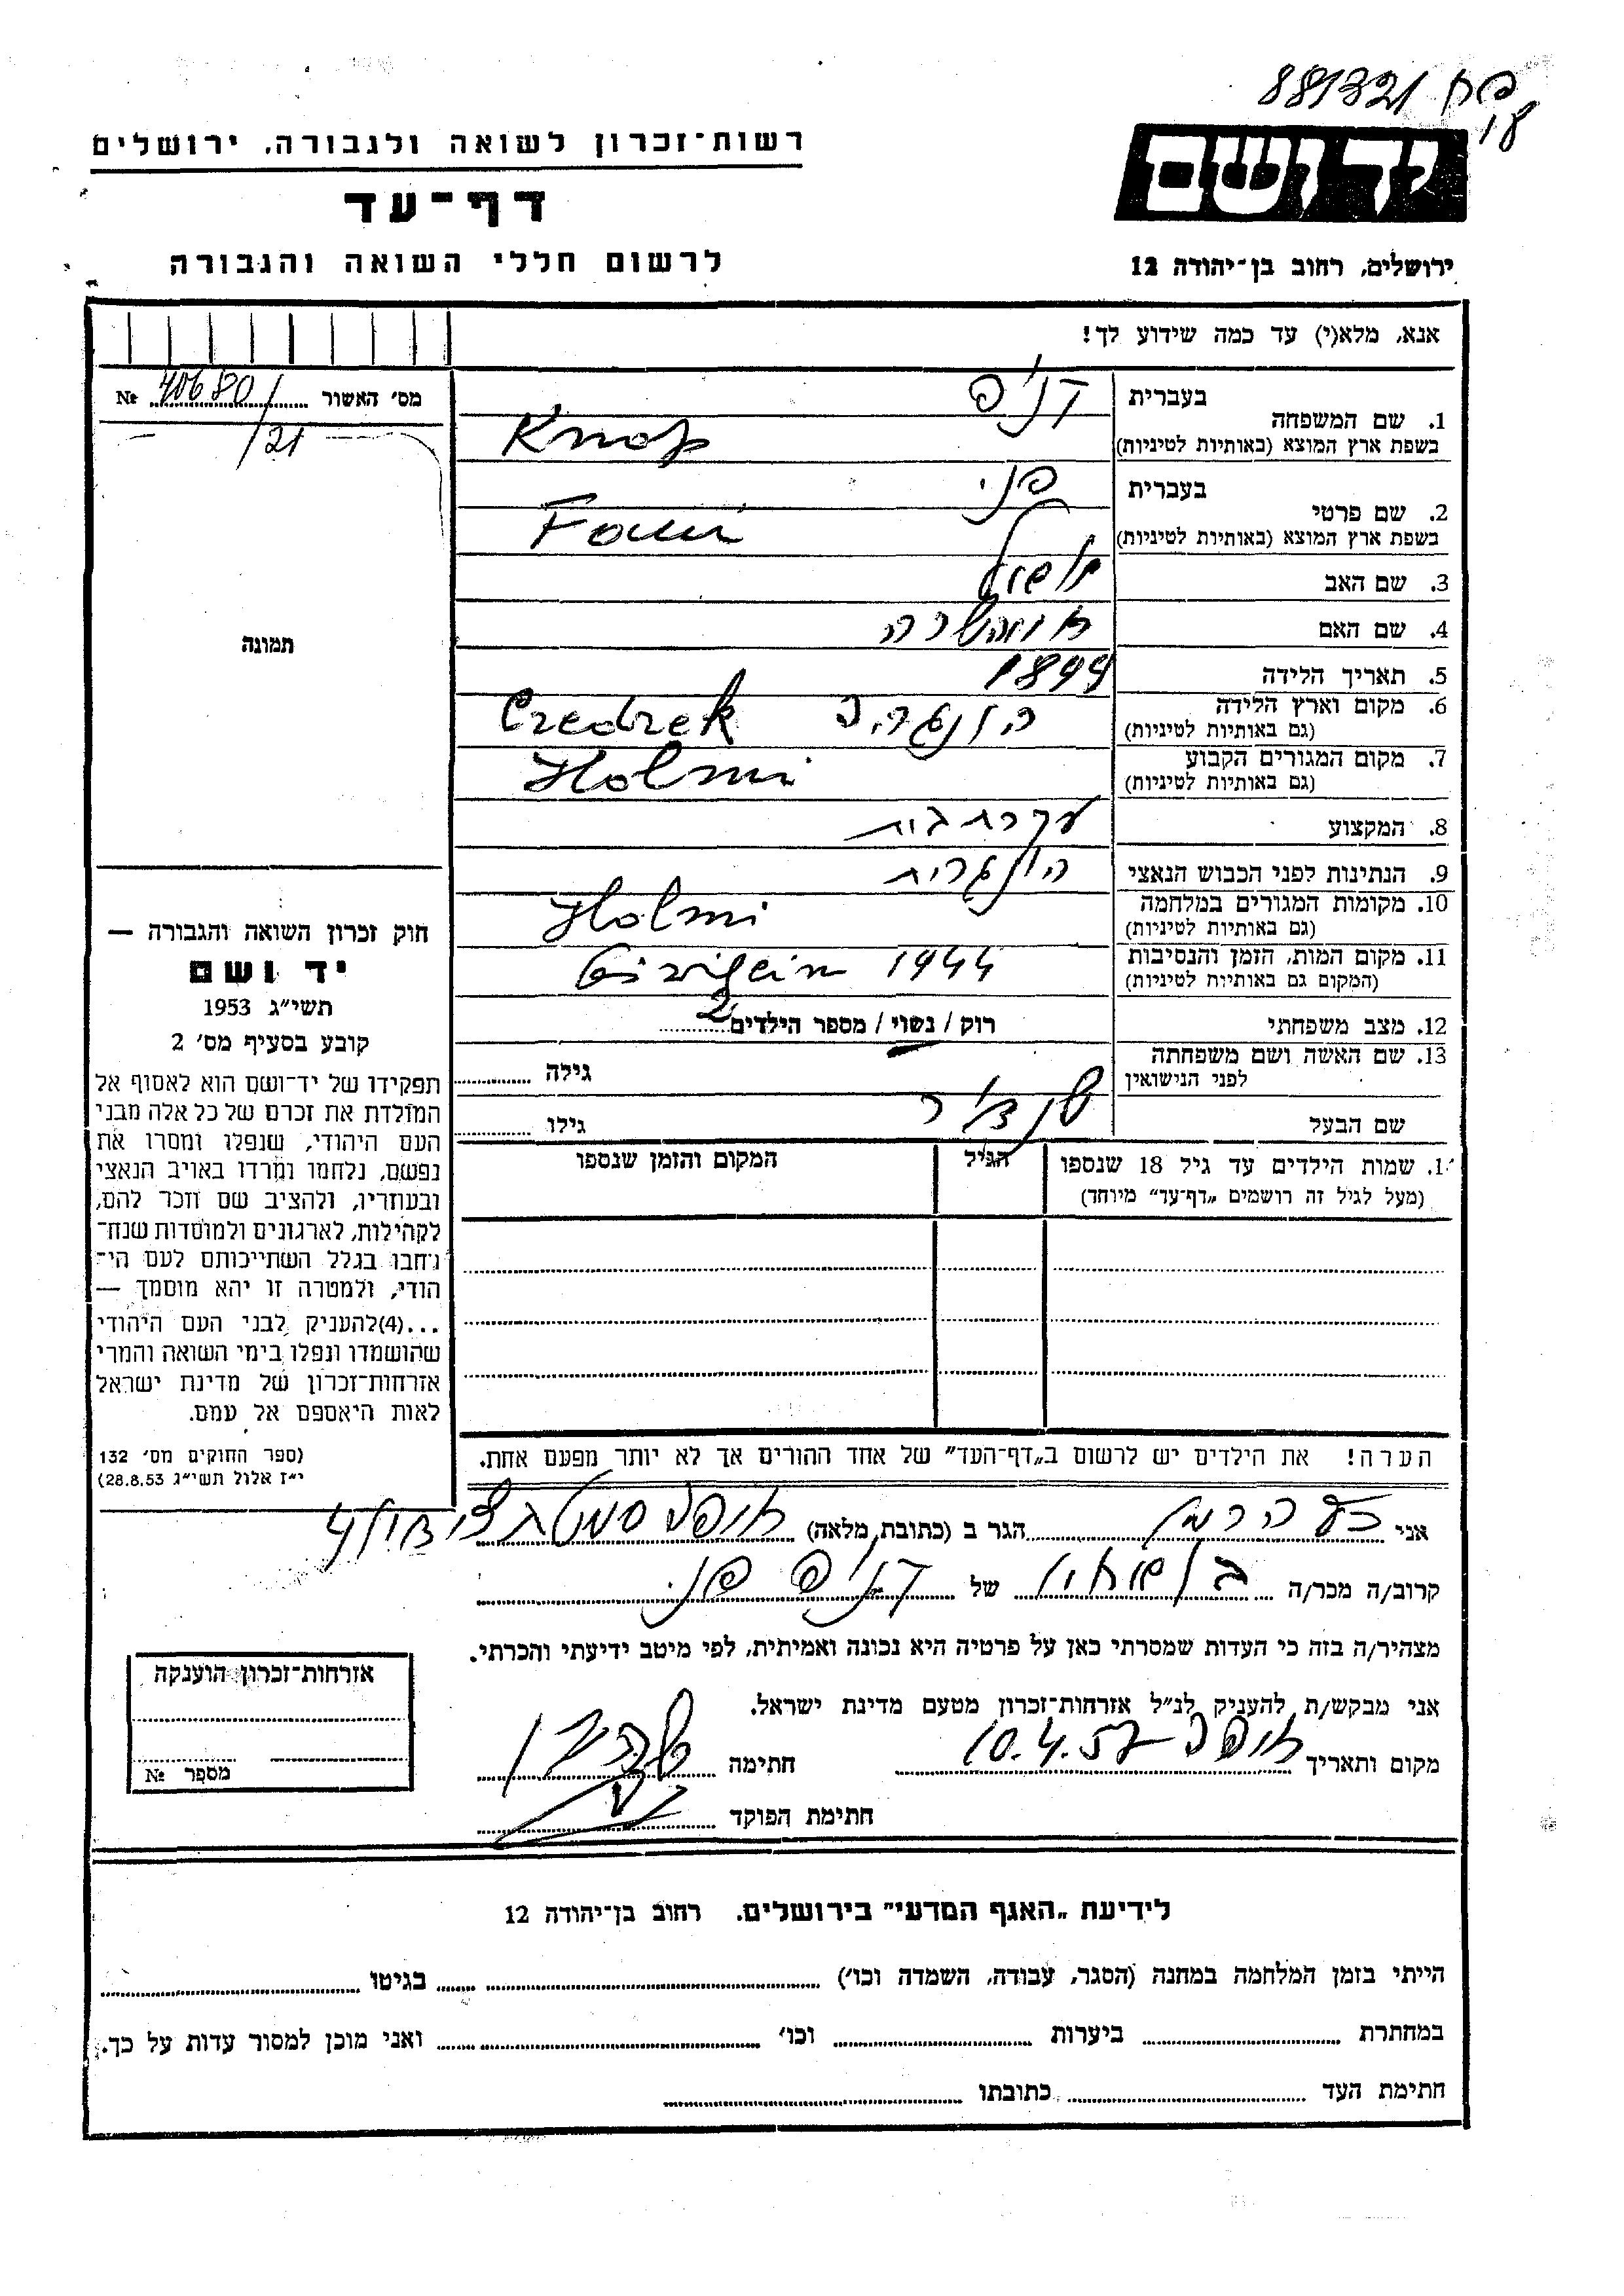 881321
רשות־זכרון לשואה ולגבורה, ירושלים
יד ושם
דף־עד
לרשום חללי השואה והגבורה
ירושלים, רחוב בן־יהודה 12
אנא, מלא(י) עד כמה שידוע לך!
מס׳ האשור 406801 №
/21
בעברית
1. שם המשפחה
בשפת ארץ המוצא (באותיות לטיניות) Knop
בעברית פני
2. שם פרטי
בשפת ארץ המוצא (באותיות לטיניות) Fani
3. שם האב
4. שם האם
5. תאריך הלידה 1899
6. מקום וארץ הלידה הונגריה Czedrek
(גם באותיות לטיניות)
7. מקום המגורים הקבוע Holmi
(גם באותיות לטיניות)
8. המקצוע עקרת בית
9. הנתינות לפני הכבוש הנאצי הונגרית
10. מקומות המגורים במלחמה Holmi
(גם באותיות לטיניות)
11. מקום המות, הזמן והנסיבות 1944
(המקום גם באותיות לטיניות)
12. מצב משפחתי רוק / נשוי / מספר הילדים 2
13. שם האשה ושם משפחתה
לפני הנישואין גילה
שם הבעל גילו
1. שמות הילדים עד גיל 18 שנספו הגיל המקום והזמן שנספו
(מעל לגיל זה רושמים „דף־עד״ מיוחד)
הערה! את הילדים יש לרשום ב„דף־העד״ של אחד ההורים אך לא יותר מפעם אחת.
תמונה
חוק זכרון השואה והגבורה —
יד ושם
תשי״ג 1953
קובע בסעיף מס׳ 2
תפקידו של יד־ושם הוא לאסוף אל
המולדת את זכרם של כל אלה מבני
העם היהודי, שנפלו ומסרו את
נפשם, נלחמו ומרדו באויב הנאצי
ובעוזריו, ולהציב שם וזכר להם,
לקהילות, לארגונים ולמוסדות שנח־
רבו בגלל השתייכותם לעם הי־
הודי, ולמטרה זו יהא מוסמך —
...(4)להעניק לבני העם היהודי
שהושמדו ונפלו בימי השואה והמרי
אזרחות־זכרון של מדינת ישראל
לאות היאספם אל עמם.
(ספר החוקים מס׳ 132
י״ז אלול תשי״ג 28.8.53)
אני הגר ב (כתובת מלאה)
קרוב/ה מכר/ה של פני
מצהיר/ה בזה כי העדות שמסרתי כאן על פרטיה היא נכונה ואמיתית, לפי מיטב ידיעתי והכרתי.
אני מבקש/ת להעניק לנ״ל אזרחות־זכרון מטעם מדינת ישראל.
מקום ותאריך 10.4.57 חתימה
חתימת הפוקד
אזרחות־זכרון הוענקה
מספר №
לידיעת „האגף המדעי״ בירושלים. רחוב בן־יהודה 12
הייתי בזמן המלחמה במחנה (הסגר, עבודה, השמדה וכו׳) בגיטו
במחתרת ביערות וכו׳ ואני מוכן למסור עדות על כך.
חתימת העד כתובתו